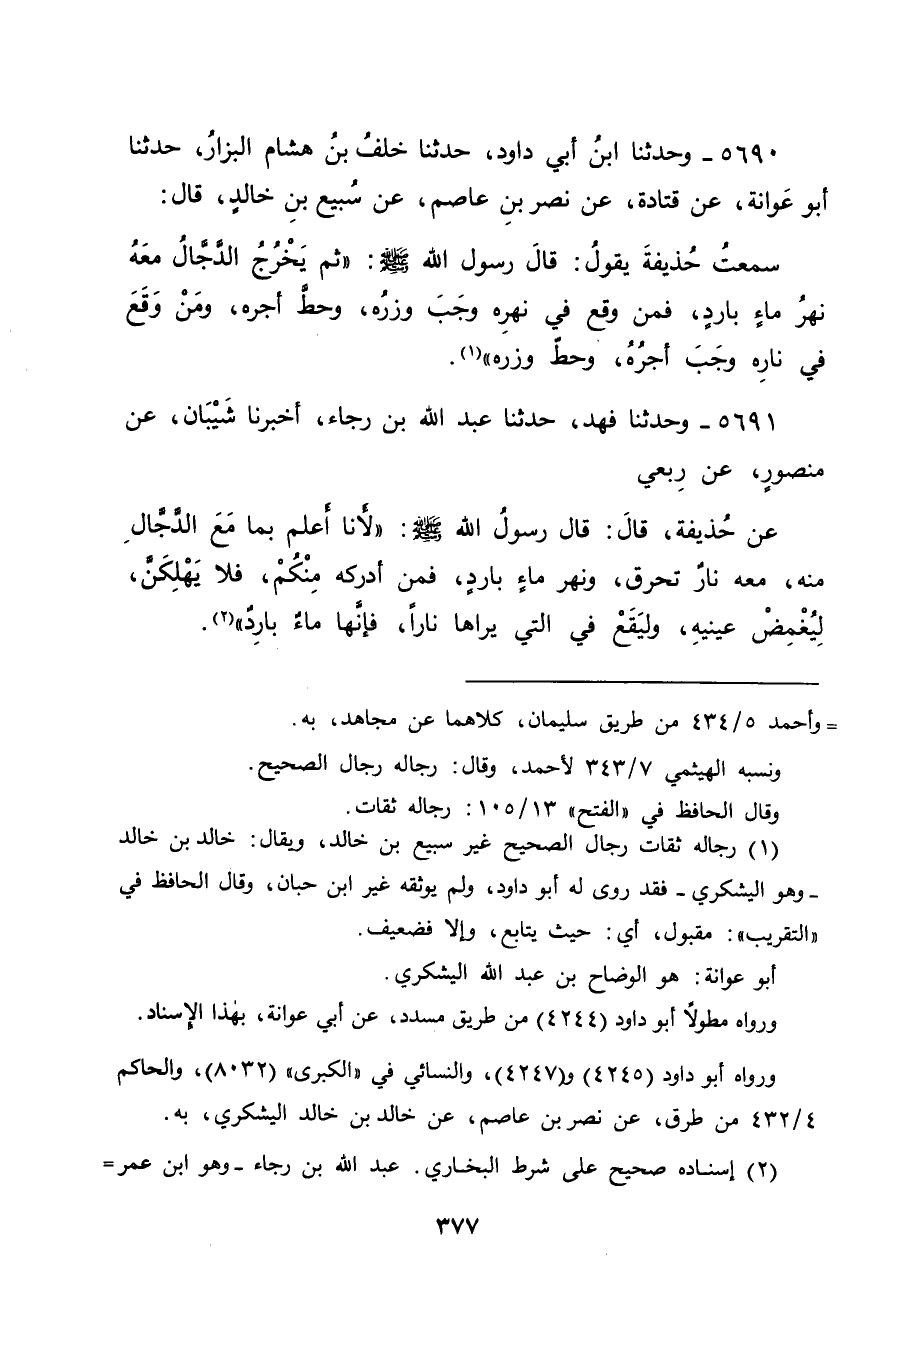 ٥٦٩٠ ـ وحدثنا ابنُ أبي داود، حدثنا خلفُ بنُ هشام البزارُ، حدثنا
أبو عَوانة، عن قتادة، عن نصر بنِ عاصم، عن سُبيع بنِ خالدٍ، قال:
سمعتُ حُذيفةَ يقولُ: قالَ رسول الله ﷺ: «ثم يَخْرُجُ الدَّجَّالُ معَهُ
نهرُ ماءٍ باردٍ، فمن وقع في نهرِه وجَبَ وزرُه، وحطَّ أجره، ومَنْ وَقَعَ
في نارِه وجَبَ أجرُهُ، وحطّ وزره»(١).
٥٦٩١ ـ وحدثنا فهد، حدثنا عبد الله بن رجاء، أخبرنا شَيْبَان، عن
منصورٍ، عن رِبعي
عن حُذيفة، قالَ: قال رسولُ الله ﷺ: «لَأَنا أَعلم بما مَعَ الدَّجَّالِ
منه، معه نارٌ تحرق، ونهر ماءٍ باردٍ، فمن أدركه مِنْكُمْ، فلا يَهْلِكَنَّ،
لِيُغْمِضْ عينيهِ، وليَقَعْ في التي يراها ناراً، فإنَّها ماءٌ باردٌ»(٢).
= وأحمد ٤٣٤/٥ من طريق سليمان، كلاهما عن مجاهد، به.
ونسبه الهيثمي ٣٤٣/٧ لأحمد، وقال: رجاله رجال الصحيح.
وقال الحافظ في «الفتح» ١٠٥/١٣: رجاله ثقات.
(١) رجاله ثقات رجال الصحيح غير سبيع بن خالد، ويقال: خالد بن خالد
ـ وهو اليشكري ـ فقد روى له أبو داود، ولم يوثقه غير ابن حبان، وقال الحافظ في
«التقريب»: مقبول، أي: حيث يتابع، وإلا فضعيف.
أبو عوانة: هو الوضاح بن عبد الله اليشكري.
ورواه مطولاً أبو داود (٤٢٤٤) من طريق مسدد، عن أبي عوانة، بهٰذا الإسناد.
ورواه أبو داود (٤٢٤٥) و(٤٢٤٧)، والنسائي في «الكبرى» (٨٠٣٢)، والحاكم
٤٣٢/٤ من طرق، عن نصر بن عاصم، عن خالد بن خالد اليشكري، به.
(٢) إسناده صحيح على شرط البخاري. عبد الله بن رجاء ـ وهو ابن عمر=
٣٧٧